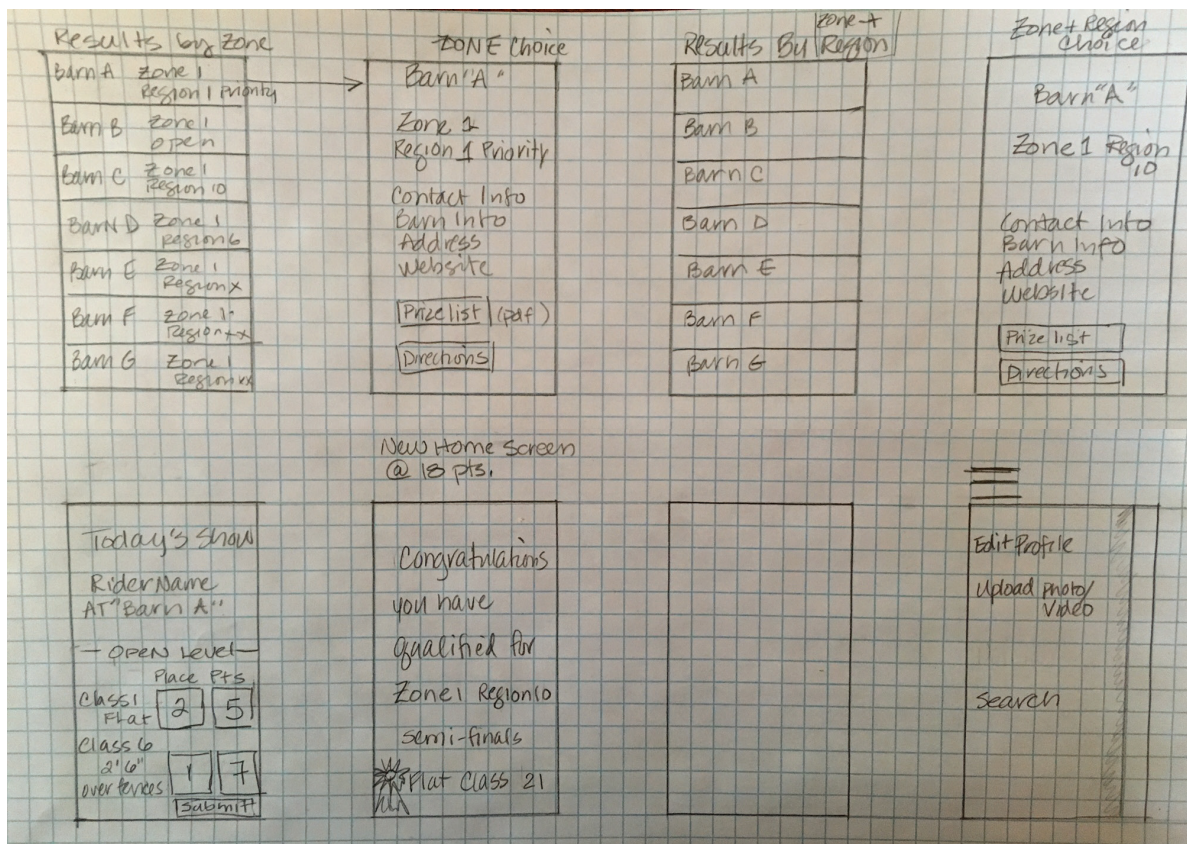 Results by Zone
Barn A Zone 1
Region 1 Priority
Barn B Zone 1
open
Barn C Zone 1
Region 10
Barn D Zone 1
Region 6
Barn E Zone 1
Region x
Barn F Zone 1
Region xx
Barn G Zone 1
Region xx
ZONE Choice
Barn "A"
Zone 1
Region 1 Priority
Contact Info
Barn Info
Address
Website
Prize list (pdf)
Directions
Zone +
Results By Region
Barn A
Barn B
Barn C
Barn D
Barn E
Barn F
Barn G
Zone + Region
Choice
Barn "A"
Zone 1 Region
10
Contact Info
Barn Info
Address
Website
Prize list
Directions
Today's Show
Rider Name
AT "Barn A"
- OPEN Level -
Place Pts
Class 1
Flat 2 5
Class 6
2'6"
over fences 1 7
Submit
New Home Screen
@ 18 pts.
Congratulations
you have
qualified for
Zone 1 Region 10
semi-finals
Flat Class 21
Edit Profile
Upload photo/
Video
Search